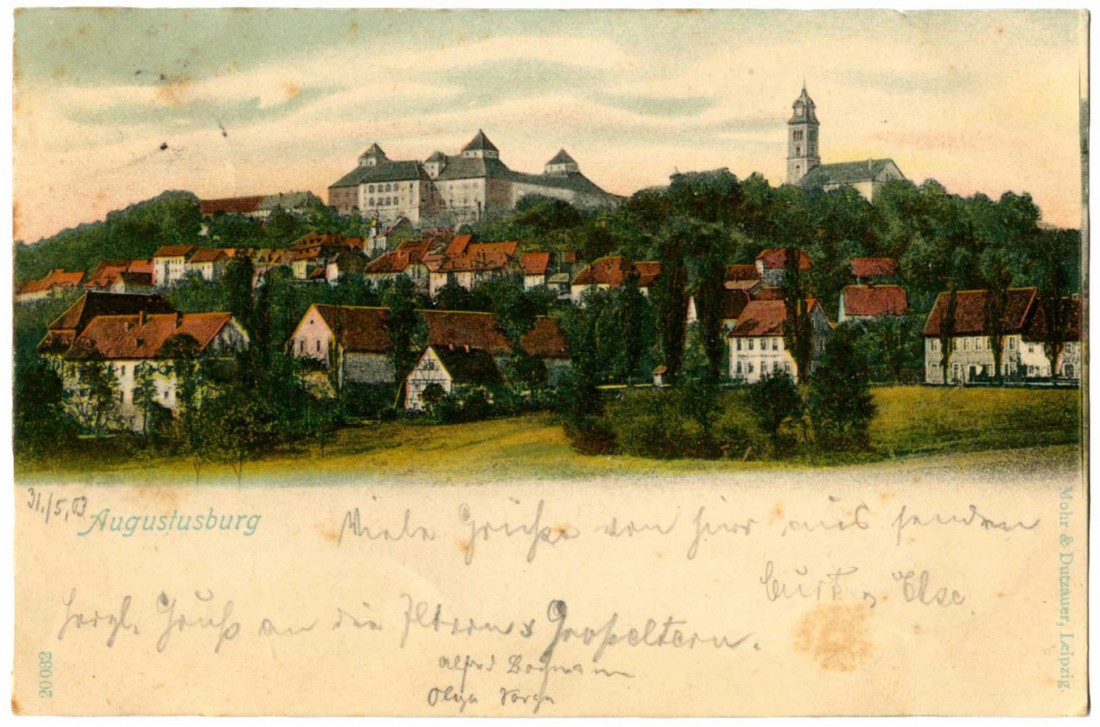 31./5.03
Augustusburg
Viele Grüße von hier aus senden
Curt u Else.
Herzl. Gruß an die Eltern u Großeltern.
Alfred
Olga
20032
Mohr & Dutzauer, Leipzig.